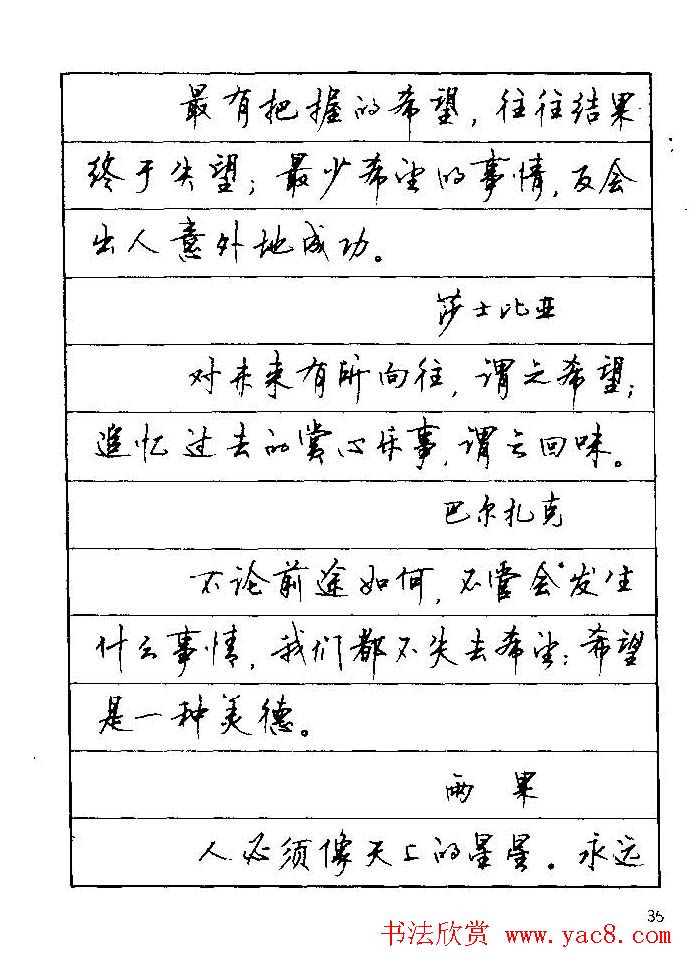 最有把握的希望，往往结果
终于失望；最少希望的事情，反会
出人意外地成功。
莎士比亚
对未来有所向往，谓之希望；
追忆过去的赏心乐事，谓之回味。
巴尔扎克
不论前途如何，不管会发生
什么事情，我们都不失去希望：希望
是一种美德。
雨果
人必须像天上的星星。永远
35
书法欣赏 www.yac8.com